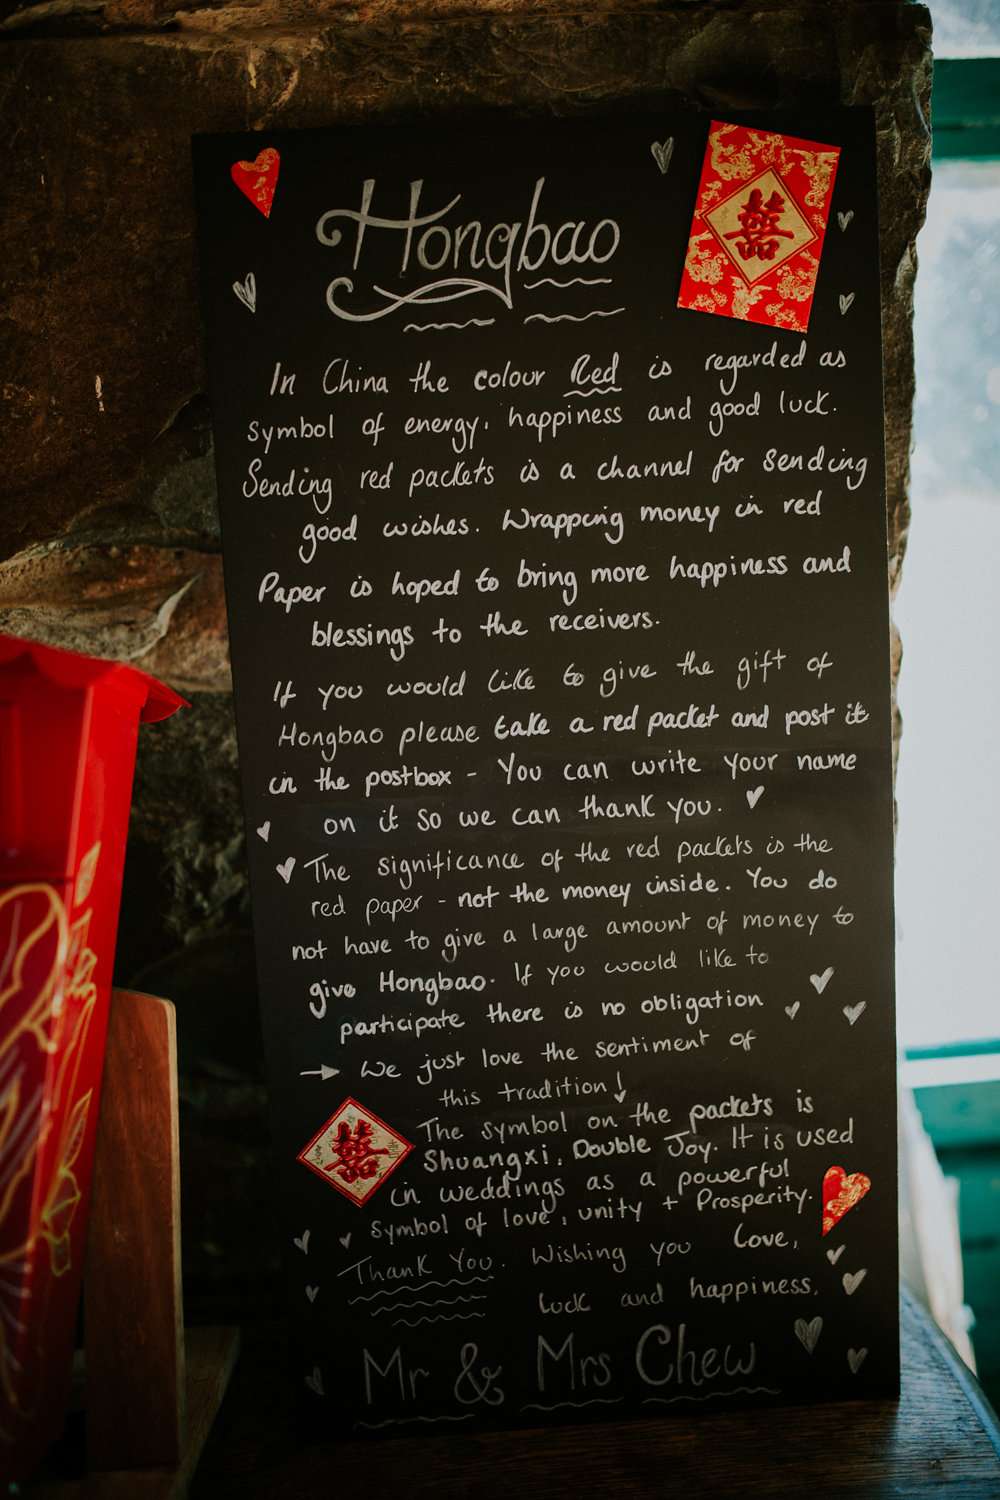 Hongbao
囍
In China the colour Red is regarded as
symbol of energy, happiness and good luck.
Sending red packets is a channel for sending
good wishes. Wrapping money in red
Paper is hoped to bring more happiness and
blessings to the receivers.
If you would like to give the gift of
Hongbao please take a red packet and post it
in the postbox - You can write your name
on it so we can thank you.
The significance of the red packets is the
red paper - not the money inside. You do
not have to give a large amount of money to
give Hongbao. If you would like to
participate there is no obligation
→ We just love the sentiment of
this tradition!
囍
The symbol on the packets is
Shuangxi, Double Joy. It is used
in weddings as a powerful
symbol of love, unity + Prosperity.
Thank You. Wishing you Love,
luck and happiness,
Mr & Mrs Chew